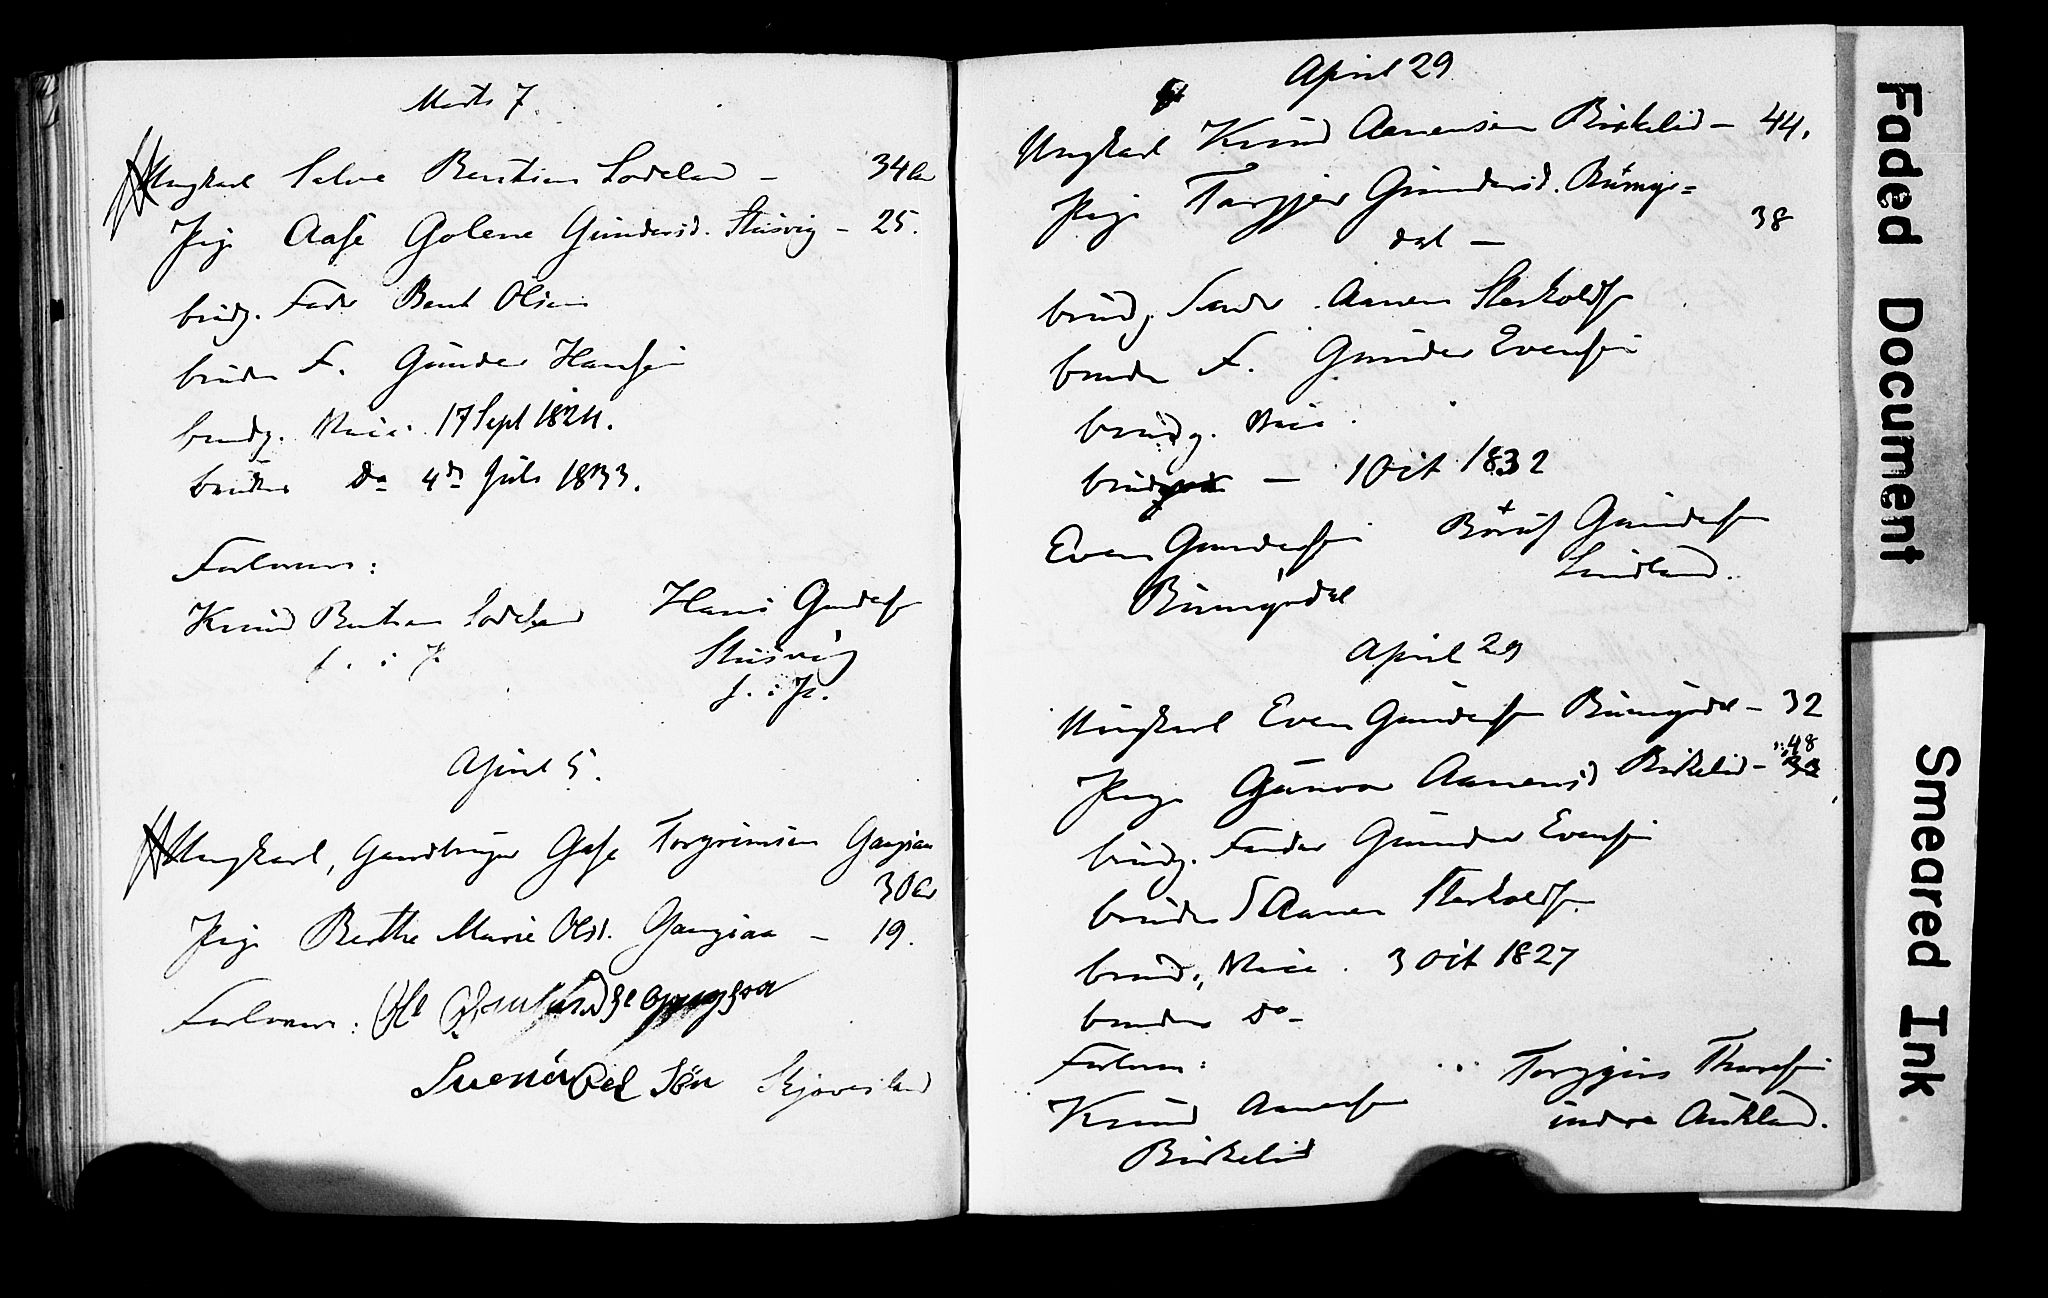 Marts 7.
Ungkarl Salve Bentsen Lodeland – 34 Aar
Pige Aase Golene Gundersd. Stusvig – 25.
brudg. Fader Bent Olsen
bruden F. Gunder Hansen
brudg. Vacc. 17 Sept 1824.
bruden do 4de Juli 1833.
Forlovere:
Knud Bentsen Lodeland
Hans Gunders.
Stusvig
April 5.
Ungkarl, Gaardbruger Torgrimsen
30 Aar
Pige Berthe Marie Olsd. – 19.
Forlovere: Ole
Sven Søn
April 29
Ungkarl Knud Aanensen Birkelid – 44.
Pige Torgjer Gundersd. Rumye=
dal – 38
brudg. Fader Aanen Sterkolds.
bruden F. Gunder Evensen
brudg. Vacc.
– 1 Oct 1832
Even Gundersen
Gunders.
Lindland.
April 29
Ungkarl Even Gunders. – 32
Pige Gunvor Aanensd Birkelid – 48
brudg. Fader Gunder Evensen
bruden F Aanen Sterkolds.
brudg. Vacc. 3 Oct 1827
bruden do –
Forlovere:
Knud Aanens.
Birkelid
Torgjus Thorsen
indre Aukland.
Faded Document
Smeared Ink